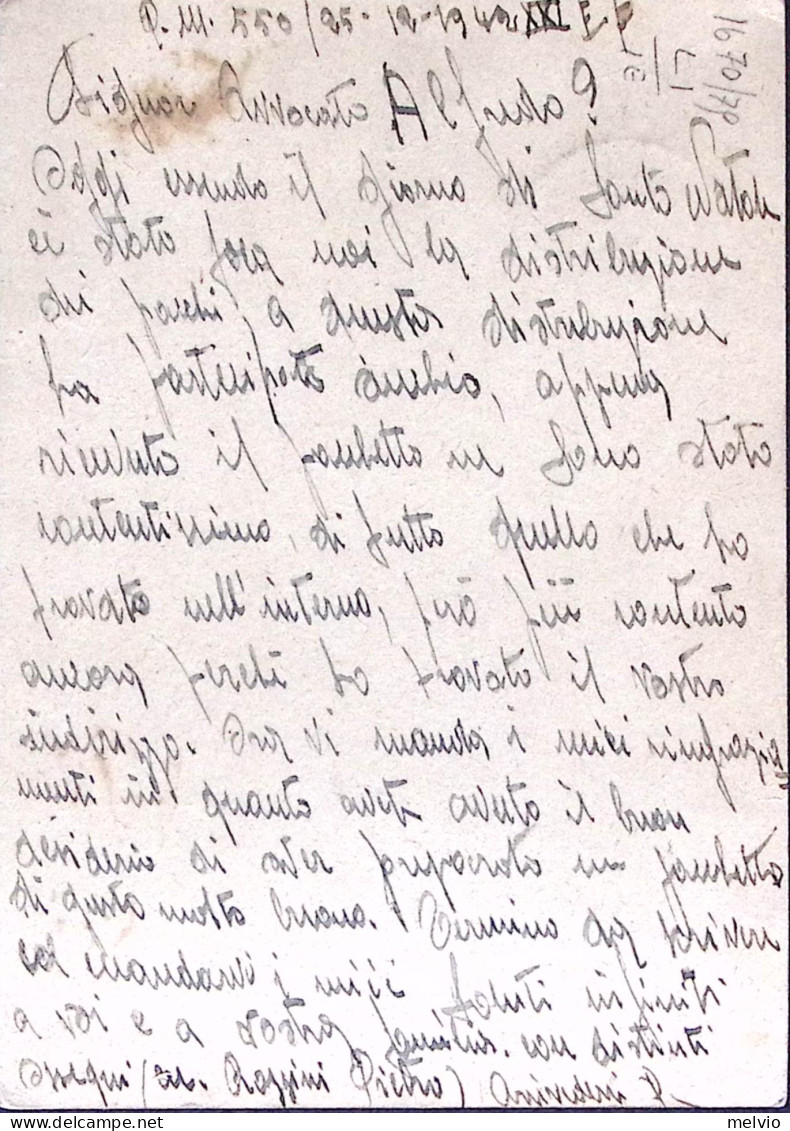 P.M. 550/25-12-1942 XXI E.F.
1670/78
Signor Avvocato Alfredo?
Oggi essendo il giorno di Santo Natale
è stato fra noi la distribuzione
dei pacchi, a questa distribuzione
ho partecipato anchio, appena
ricevuto il pacchetto ne sono stato
contentissimo, di tutto quello che ho
trovato nell'interno, però più contento
ancora perchè ho trovato il vostro
indirizzo. Ora vi manda i miei ringrazia
menti in quanto avete avuto il buon
desiderio di aver preparato un pacchetto
di gusto molto buono. Termino da scrivere
col mandarvi i miei saluti infiniti
a voi e a vostra famiglia. con distinti
Ossequi ( Rossini Pietro) Arrivederci P.
melvio